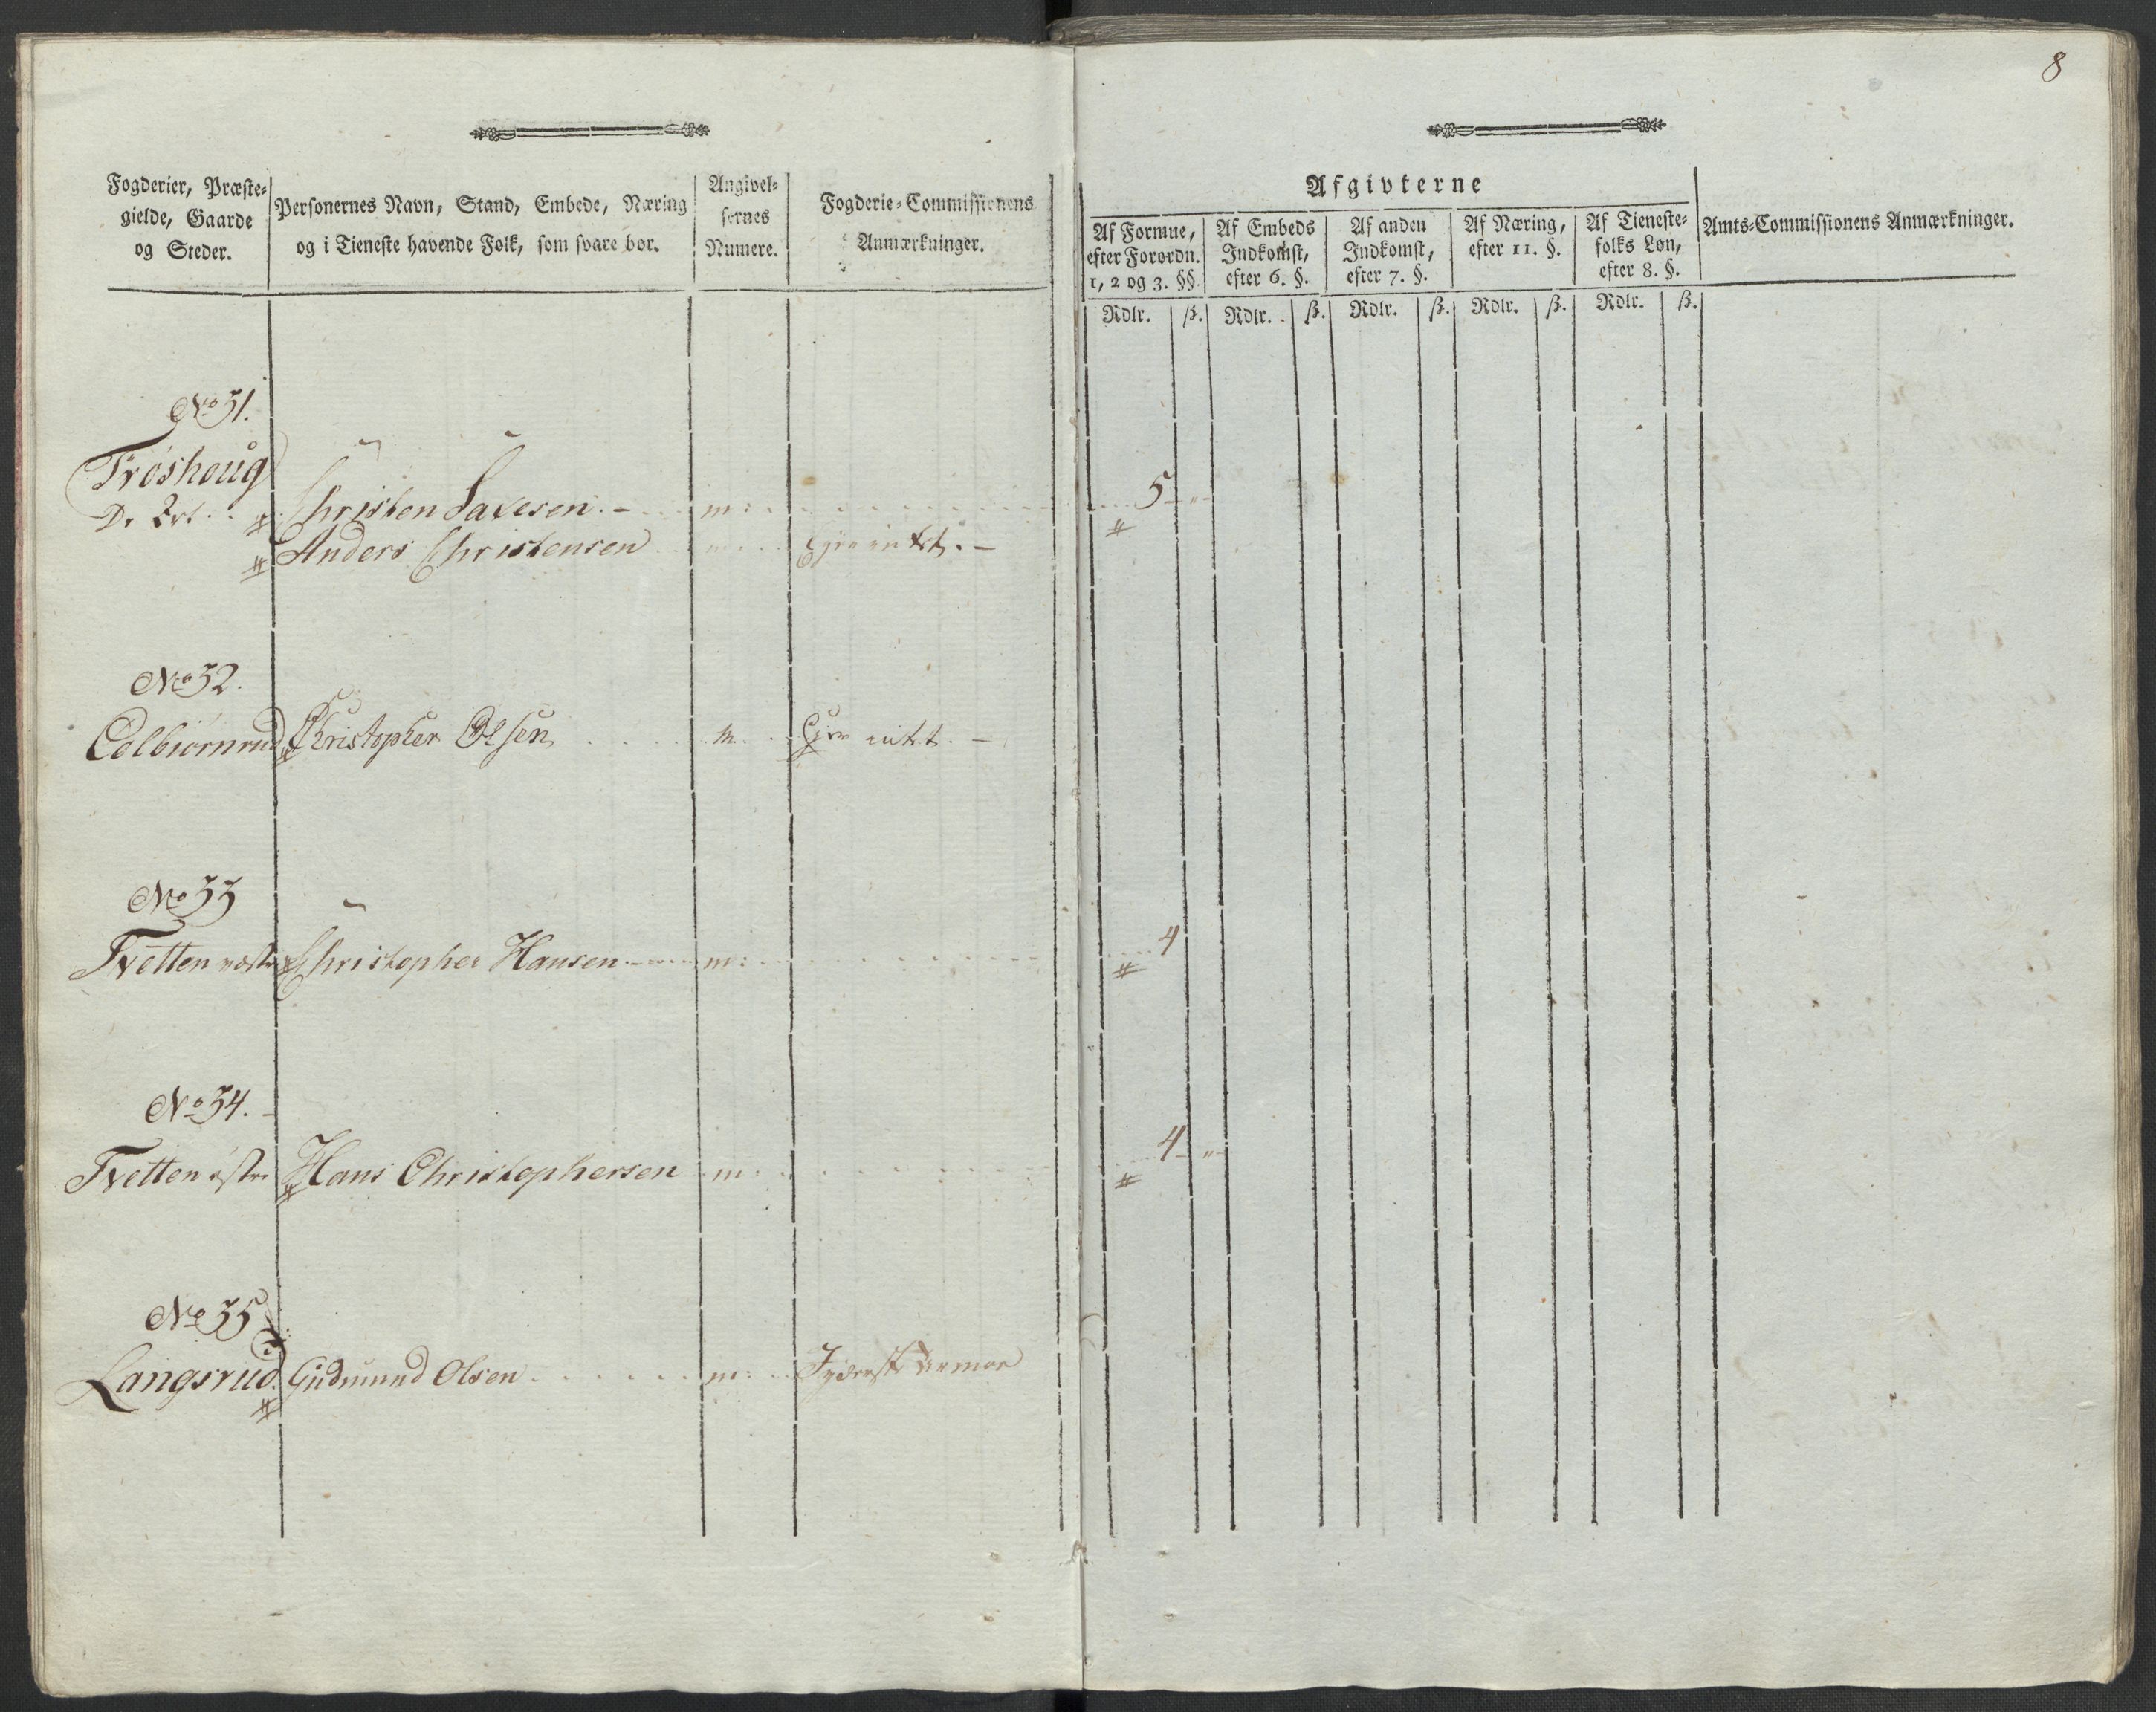 8
Fogderier, Præste-
gielde, Gaarde
og Steder.
Personernes Navn, Stand, Embede, Næring
og i Tieneste havende Folk, som svare bør.
Angivel-
sernes
Numere.
Fogderie-Commissionens
Anmærkninger.
Afgivterne
Af Formue,
efter Forordn.
1, 2 og 3. §§.
Af Embeds
Indkomst,
efter 6. §.
Af anden
Indkomst,
efter 7. §.
Af Næring,
efter 11. §.
Af Tieneste-
folks Løn,
efter 8. §.
Amts-Commissionens Anmærkninger.
Rdlr. ß. Rdlr. ß. Rdlr. ß. Rdlr. ß. Rdlr. ß.
No 31.
Trøshoug
Christen Saxesen m: 5
Anders Christensen intet.
No 32.
Colbiørnrud Christopher Olsen m. intet.
No 33
Tvetten vestre Christopher Hansen m: 4
No 34.
Tvetten østre Hans Christophersen m. 4
No 35
Langsrud Gudmund Olsen m: Yderst armoe